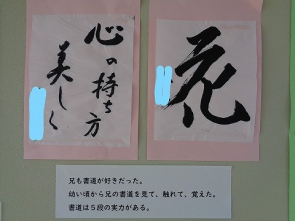 花
心の持ち方
美しく
兄も書道が好きだった。
幼い頃から兄の書道を見て、触れて、覚えた。
書道は5段の実力がある。